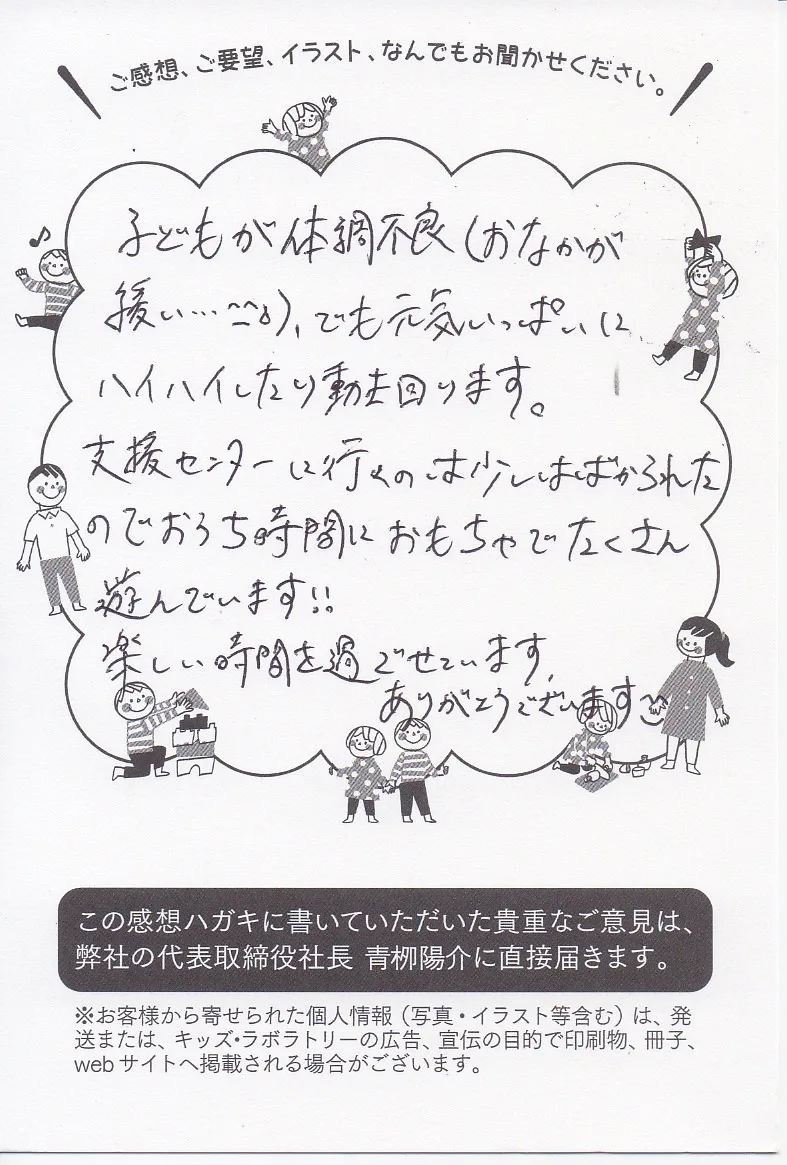 ご感想、ご要望、イラスト、なんでもお聞かせください。
子どもが体調不良(おなかが
緩い…^^;)、でも元気いっぱいに
ハイハイしたり動き回ります。
支援センターに行くのは少しはばかられた
のでおうち時間におもちゃでたくさん
遊んでいます!!
楽しい時間を過ごせています。
ありがとうございます
この感想ハガキに書いていただいた貴重なご意見は、
弊社の代表取締役社長 青栁陽介に直接届きます。
※お客様から寄せられた個人情報(写真・イラスト等含む)は、発
送または、キッズ・ラボラトリーの広告、宣伝の目的で印刷物、冊子、
webサイトへ掲載される場合がございます。